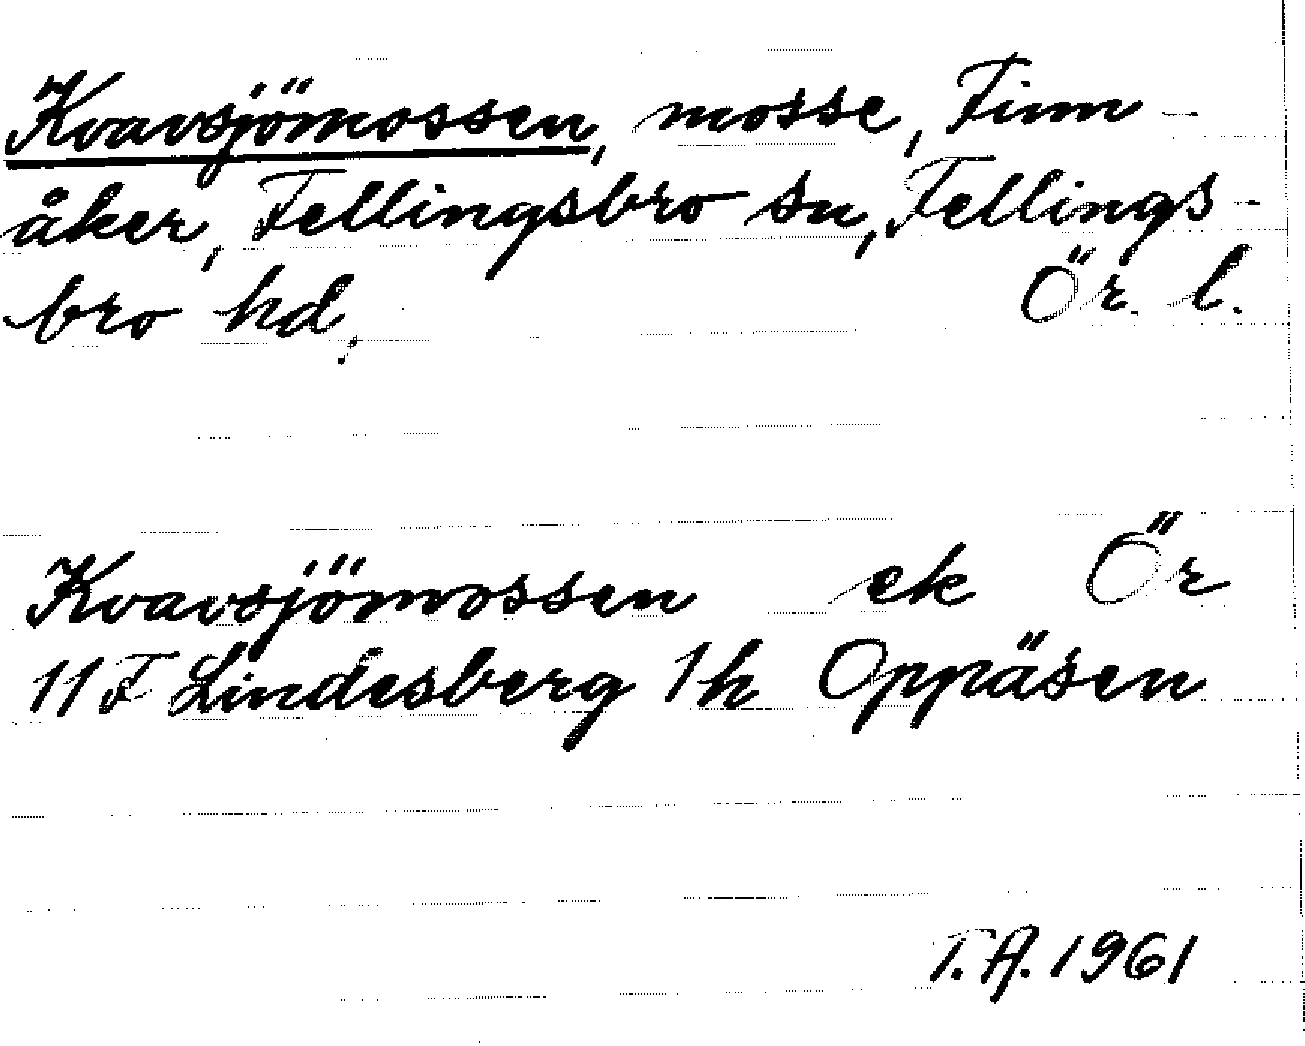 Kvavsjömossen, mosse, Finn-
åker, Fellingsbro sn, Fellings-
bro hd. Ör. l.
Kvavsjömossen ek Ör
11F Lindesberg 1h Oppåsen
T.A. 1961